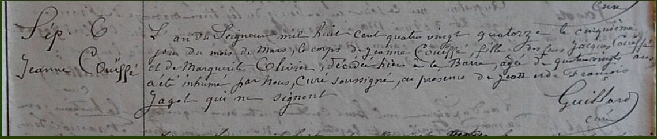 Curé
Sép. 6
Jeanne Couësfé
L'an du Seigneur mil huit cent quatre vingt quatorze le cinquième
jour du mois de Mars, le corps de Jeanne Couësfé, fille des feus Jacques Couësfé
et de Marguerite Olivier, décédé hier à la Barre, âgé de ans
a été inhumé par Nous, Curé soussigné, en présence de Jean et de François
Jagot qui ne signent
Guillard
curé